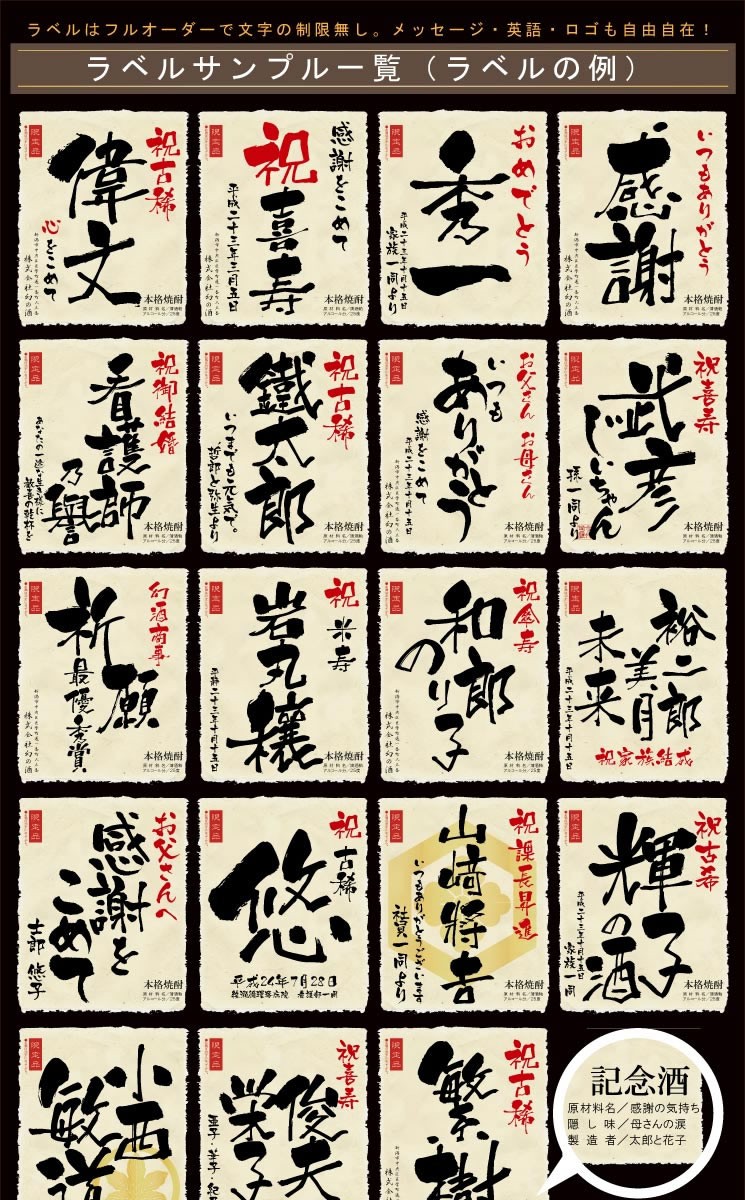 ラベルはフルオーダーで文字の制限無し。メッセージ・英語・ロゴも自由自在！
ラベルサンプル一覧（ラベルの例）
限定品
祝古稀
偉文
心をこめて
株式会社幻の酒
本格焼酎
限定品
感謝をこめて
祝
喜寿
平成二十三年三月五日
限定品
おめでとう
秀一
平成二十三年十月十五日
家族一同より
限定品
いつもありがとう
感謝
株式会社幻の酒
本格焼酎
限定品
祝御結婚
看護師
乃
誉
本格焼酎
限定品
祝古稀
鐵太郎
いつまでも元気で。
哲郎と弥生より
本格焼酎
限定品
お父さん お母さん
いつも
ありがとう
感謝をこめて
平成二十三年十月十五日
株式会社幻の酒
本格焼酎
限定品
祝喜寿
武彦
じいちゃん
孫一同より
限定品
幻酒商事
祈願
最優秀賞
株式会社幻の酒
本格焼酎
限定品
祝
米寿
岩丸穣
本格焼酎
限定品
祝傘寿
和郎
のり子
株式会社幻の酒
本格焼酎
限定品
裕二郎
美月
未来
平成二十三年十月十五日
祝家族結成
限定品
お父さんへ
感謝を
こめて
士郎 悠子
本格焼酎
限定品
祝
古稀
悠
平成26年7月28日
限定品
祝課長昇進
山﨑將吉
いつもありがとうございます
社員一同より
限定品
祝古希
輝子
の酒
平成二十三年十月十五日
家族一同
本格焼酎
限定品
小西
敏
限定品
祝喜寿
俊夫
栄子
限定品
祝古稀
繁樹
記念酒
原材料名／感謝の気持ち
隠し味／母さんの涙
製造者／太郎と花子